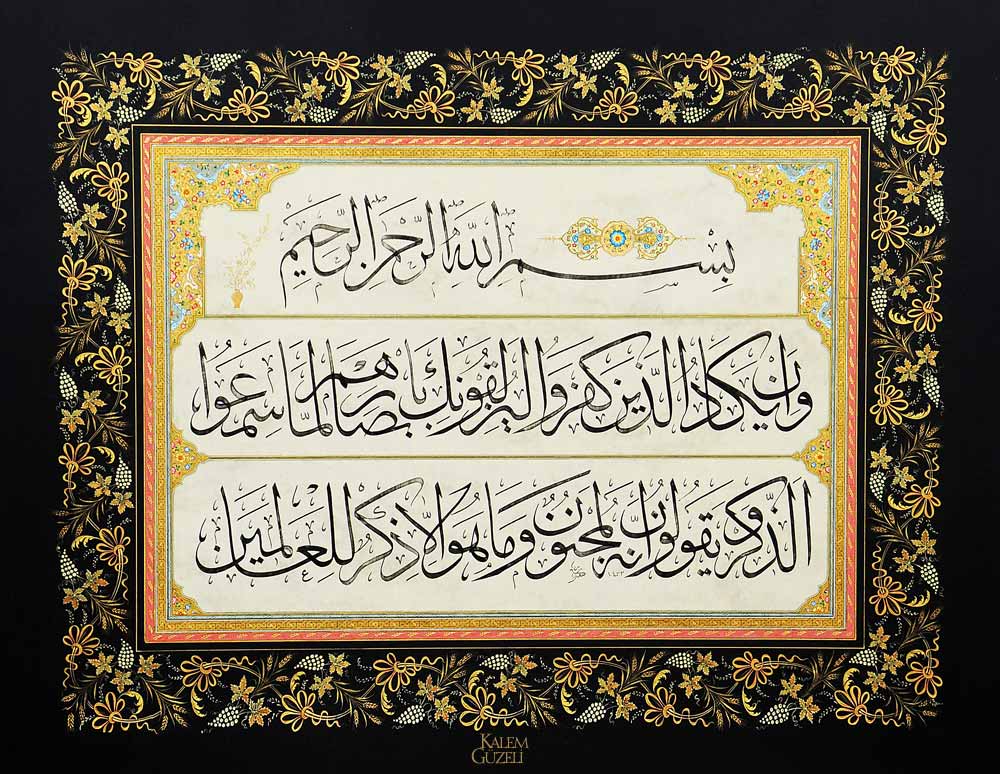 بِسْمِ اللّٰهِ الرَّحْمٰنِ الرَّحِيْمِ
وَاِنْ يَكَادُ الَّذِينَ كَفَرُوا لَيُزْلِقُونَكَ بِاَبْصَارِهِمْ لَمَّا سَمِعُوا
الذِّكْرَ وَيَقُولُونَ اِنَّهُ لَمَجْنُونٌ وَمَا هُوَ اِلَّا ذِكْرٌ لِلْعَالَمِينَ
١٤٢٣
KALEM
GÜZELİ